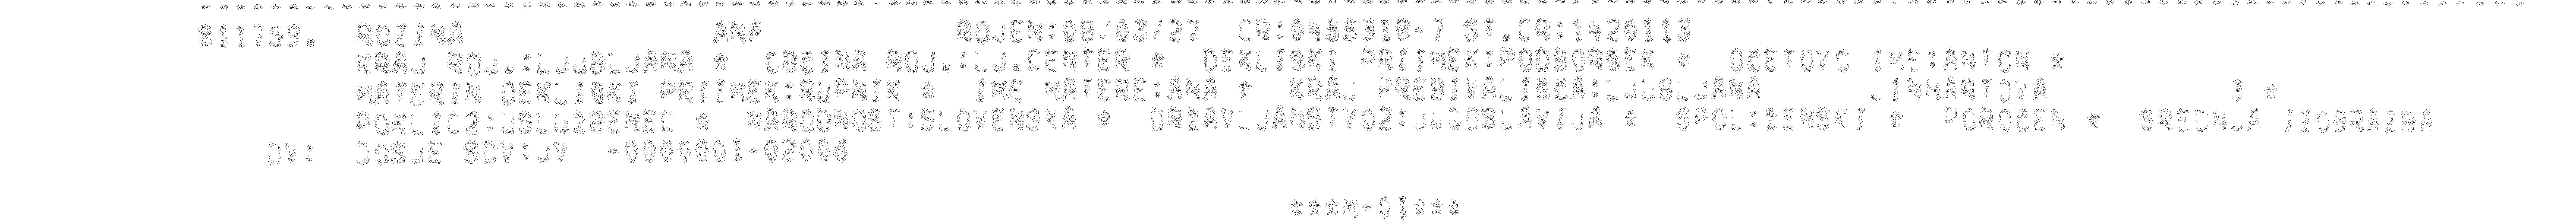 611759. ROZINA ANA ROJEN:08/03/27 CR:0456318-7 ST.CR:1420113
KRAJ ROJ.:LJUBLJANA * OBCINA ROJ.:LJ.CENTER * DEKLISKI PRIIMEK:PODBORSEK * OCETOVO IME:ANTON *
MATERIN DEKLISKI PRIIMEK:RUPNIK * IME MATERE:ANA * KRAJ PREBIVALISCA:LJUBLJANA LINHARTOVA *
POKLIC2:USLUZBENEC * NARODNOST:SLOVENSKA * DRZAVLJANSTVO2:JUGOSLAVIJA * SPOL:ZENSKI * POROCEN * SREDNJA IZOBRAZBA
DV: DOSJE SDV:JV -0000001-02006
***M-DI***